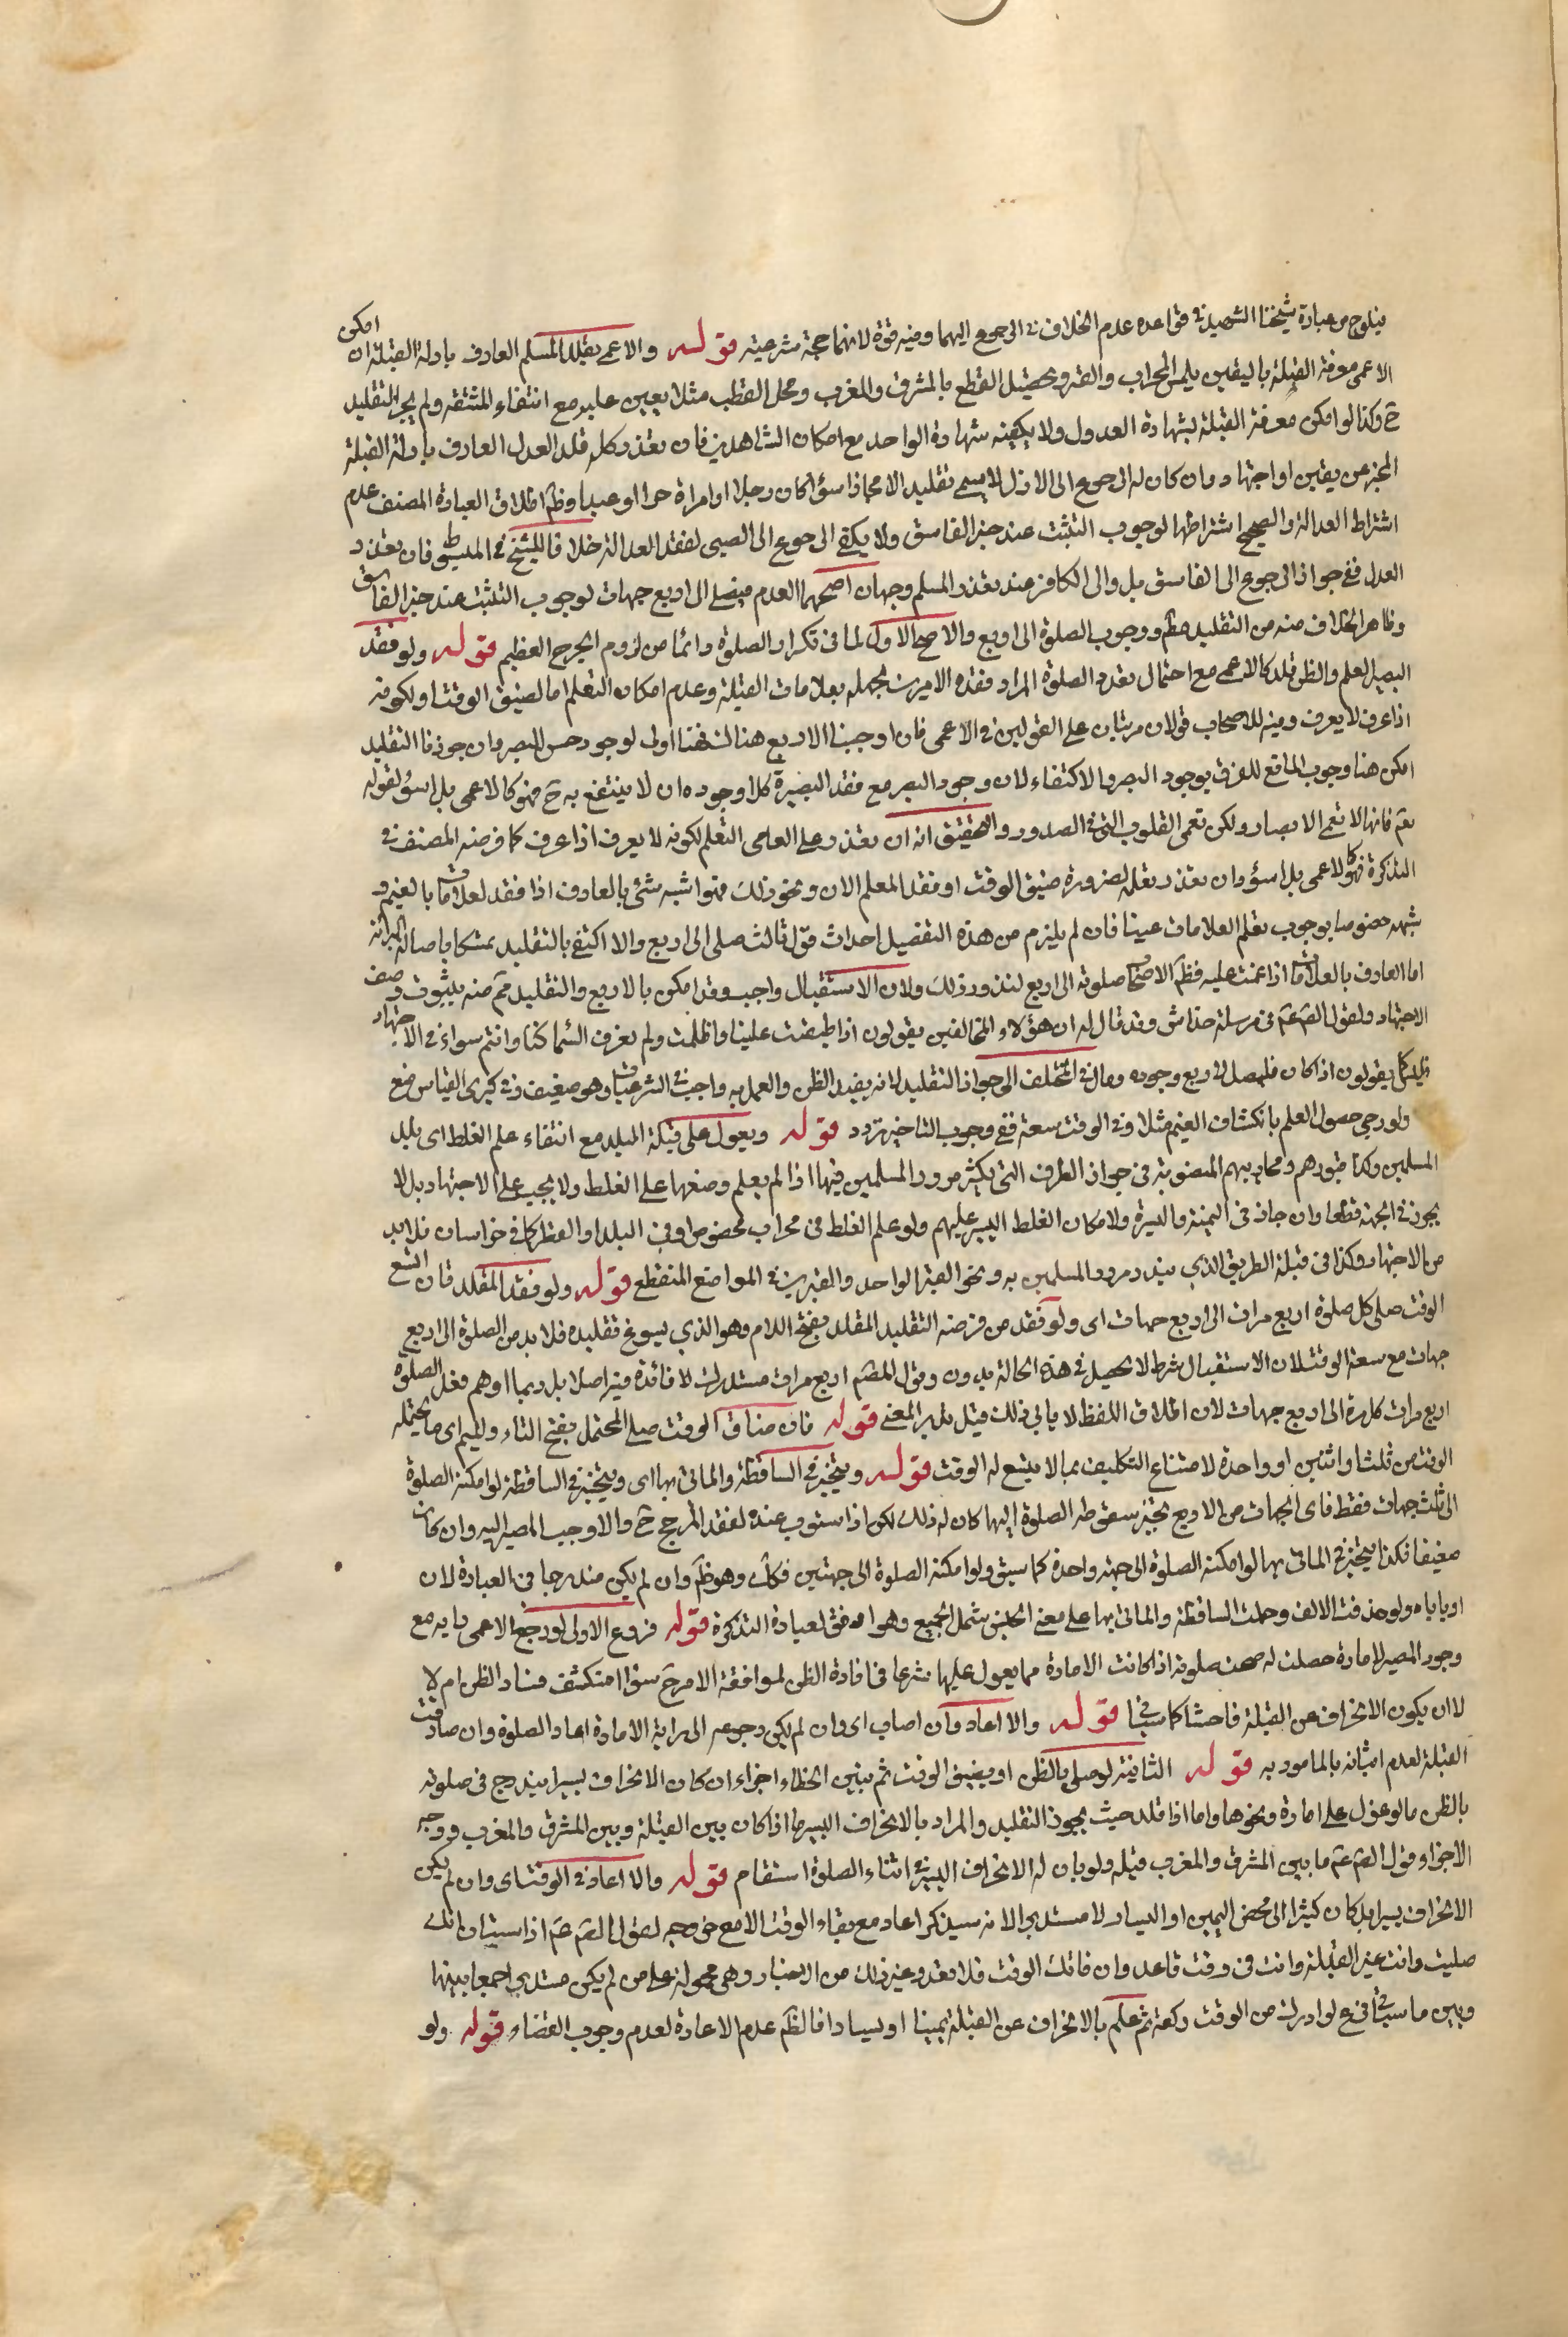 فيلوح من عبارة شيخنا الشهيد في قواعده عدم الخلاف في الرجوع اليهما وفيه قوة لانهما حجة شرعية قوله والاعمى يقلد المسلم العارف بادلة القبلة ان امكن
الاعمى معرفة القبلة باليقين بلمس المحراب والقبر وتحصيل القطع بالمشرق والمغرب ومحل القطب مثلا تعين عليه مع انتفاء المشقة ولم يجز التقليد
ح وكذا لو امكن معرفة القبلة بشهادة العدول ولا يكفيه شهادة الواحد مع امكان الشاهدين فان تعذر كله قلد العدل العارف بادلة القبلة
المخبر عن يقين او اجتهاد وان كان الرجوع الى الاول لا يسمى تقليدا الا مجازا سواء كان رجلا او امراة حرا او عبدا وظ اطلاق العبارة المصنف عدم
اشتراط العدالة والصحيح اشتراطها لوجوب التثبت عند خبر الفاسق ولا يكفي الرجوع الى الصبي لفقد العدالة خلافا للشيخ في المبسوط فان تعذر
العدل ففي جواز الرجوع الى الفاسق بل والى الكافر عند تعذر المسلم وجهان اصحهما العدم فيصلي الى اربع جهات لوجوب التثبت عند خبر الفاسق
وظاهر الخلاف منه من التقليد مط ووجوب الصلوة الى اربع والاصح الاول لما في تكرار الصلوة دائما من لزوم الحرج العظيم قوله ولو فقد
البصير العلم والظن قلد كالاعمى مع احتمال تعدد الصلوة المراد فقده الامرين لجهله بعلامات القبلة وعدم امكان التعلم اما لضيق الوقت او لكونه
اذا عرف لا يعرف وفيه للاصحاب قولان مرتبان على القولين في الاعمى فان اوجبنا الاربع هناك فهنا اولى لوجود حس البصر وان جوزنا التقليد
امكن هنا وجوب الاربع للفرق بوجود البصر والاكتفاء لان وجود البصر مع فقد البصيرة كلا وجوده ان لا ينتفع به ح فهو كالاعمى بل اسوء لقوله
تعم فانها لا تعمى الابصار ولكن تعمى القلوب التي في الصدور والتحقيق انه ان تعذر على العامي التعلم لكونه لا يعرف اذا عرف كما فرضه المصنف في
التذكرة فهو كالاعمى بل اسوء وان تعذر تعلمه لضرورة ضيق الوقت او فقد المعلم الان ونحو ذلك فهو اشبه شئ بالعارف اذا فقد العلامات بالغيم و
شبهه خصوصا بوجوب تعلم العلامات عينا فان لم يلزم من هذه التفصيل احداث قول ثالث صلى الى اربع والا اكتفى بالتقليد تمسكا باصالة البرائة
اما العارف بالعلامات اذا عمت عليه فظ الاصحاب صلوته الى اربع لندور ذلك ولان الاستقبال واجب وقد امكن بالاربع والتقليد مم منه بثبوت وصف
الاجتهاد ولقول الص عم في مرسلة خداش وقد قال له ان هؤلاء المخالفين يقولون اذا اطبقت علينا واظلمت ولم نعرف السماء كنا وانتم سواء في الاجتهاد
ليس كما يقولون اذا كان فليصل لاربع وجوه ومال في المختلف الى جواز التقليد لانه يفيد الظن والعمل به واجب في الشرعيات وهو ضعيف وفي كبرى القياس منع
ولو رجى حصول العلم بانكشاف الغيم مثلا وفي الوقت سعة ففي وجوب التاخير تردد قوله ويعول على قبلة البلد مع انتفاء علم الغلط اى بلد
المسلمين وكذا قبورهم ومحاريبهم المنصوبة في جواز الطرق التي يكثر مرور المسلمين فيها اذا لم يعلم وضعها على الغلط ولا يجب على الاجتهاد بل لا
يجوز في الجهة قطعا وان جاز في اليمنة واليسرة ولامكان الغلط اليسير عليهم ولو علم الغلط في محراب مخصوص او في البلد او القطر كما في خراسان فلا بد
من الاجتهاد وكذا في قبلة الطريق الذي يندر مرور المسلمين به ونحو القبر الواحد والقبرين في المواضع المنقطع قوله ولو فقد المقلد فان اتسع
الوقت صلى كل صلوة اربع مرات الى اربع جهات اى ولو فقد من فرضه التقليد المقلد بفتح اللام وهو الذي يسوغ تقليده فلا بد من الصلوة الى اربع
جهات مع سعة الوقت لان الاستقبال شرط لا يحصل في هذه الحالة بدون وقول المصم اربع مرات مستدرك لا فائدة فيه اصلا بل ربما اوهم فعل الصلوة
اربع مرات كل مرة الى اربع جهات لان اطلاق اللفظ لا يابى ذلك قبل تدبر المعنى قوله فان ضاق الوقت صلى المحتمل بفتح التاء والميم اى ما يحتمله
الوقت من ثلث او اثنين او واحدة لامتناع التكليف بما لا يتسع له الوقت قوله ويتخير في الساقطة والماتي بها اى ويتخير في الساقطة لو امكنه الصلوة
الى ثلث جهات فقط فاى الجهات من الاربع تخير سقوط الصلوة اليها كان له ذلك لكن اذا استوت عنده لفقد المرجح ح والا وجب المصير اليه وان كان
ضعيفا فكذا يتخير في الماتي بها لو امكنه الصلوة الى جهة واحدة كما سبق ولو امكنه الصلوة الى جهتين فكك وهو ظ وان لم يكن مندرجا في العبارة لان
او ياباه ولو حذفت الالف وحملت الساقطة والماتي بها على معنى الجنس شمل الجميع وهو اوفق لعبارة التذكرة قوله فروع الاول لو رجع الاعمى الى رايه مع
وجود المبصر لامارة حصلت له صحت صلوته اذا كانت الامارة مما يعول عليها شرعا في افادة الظن لموافقة الامر ح سواء انكشف فساد الظن ام لا
لا ان يكون الانحراف عن القبلة فاحشا كما سياتي قوله والا اعاد وان اصاب اى وان لم يكن رجوعه الى رايه لامارة اعاد الصلوة وان صادفت
القبلة لعدم اتيانه بالمامور به قوله الثانية لو صلى بالظن او بضيق الوقت ثم تبين الخطاء اجزاء ان كان الانحراف يسيرا يندرج في صلوته
بالظن ما لو عول على امارة ونحوها واما اذا قلد حيث يجوز التقليد والمراد بالانحراف اليسير ما اذا كان بين القبلة وبين المشرق والمغرب ووجه
الاجزاء قول الص عم ما بين المشرق والمغرب قبلة ولو بان له الانحراف اليسير في اثناء الصلوة استقام قوله والا اعاد في الوقت اى وان لم يكن
الانحراف يسيرا بل كان كثيرا الى محض اليمين او اليسار لا مستدبرا لانه سيذكر اعاد مع بقاء الوقت لا مع خروجه لقول الص عم اذا استبان انك
صليت وانت على غير القبلة وانت في وقت فاعد وان فاتك الوقت فلا تعد وغير ذلك من الاخبار وهي محمولة على من لم يكن مستدبرا جمعا بينها
وبين ما سياتي فرع لو ادرك من الوقت ركعة ثم علم بالانحراف عن القبلة يمينا او يسارا فالظ عدم الاعادة لعدم وجوب القضاء قوله ولو